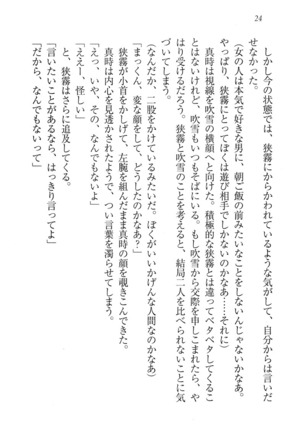 24
しかし今の状態では、狭霧にからかわれているような気がして、自分からは言いだ
せなかった。
（女の人は本気で好きな男に、朝ご飯の前みたいなことをしないんじゃないかなあ。
やっぱり、狭霧にとってぼくは遊び相手でしかないのかなあ……それに）
真時は視線を吹雪の横顔へと向けた。積極的な狭霧とは違ってベタベタしてくるこ
とはないけれど、吹雪もいつもそばにいる。もし吹雪から交際を申しこまれたら、ぼく
は受けるだろう。狭霧と吹雪のことを考えると、結局二人を比べられないことに気
づく。
（なんだか、二股をかけているみたいだ。ぼくがいいかげんな人間なのかなあ）
「まっくん、変な顔をして、どうしたのかなあ？」
狭霧が小首をかしげて、左腕を組んだまま真時の顔を覗きこんできた。
真時は内心を見透かされたようで、つい言葉を濁らせてしまう。
「えっ、いや、その、なんでもないよ」
「ええー、怪しい」
と、狭霧はさらに追及してくる。
「言いたいことがあるなら、はっきり言ってよ」
「だから、なんでもないって」